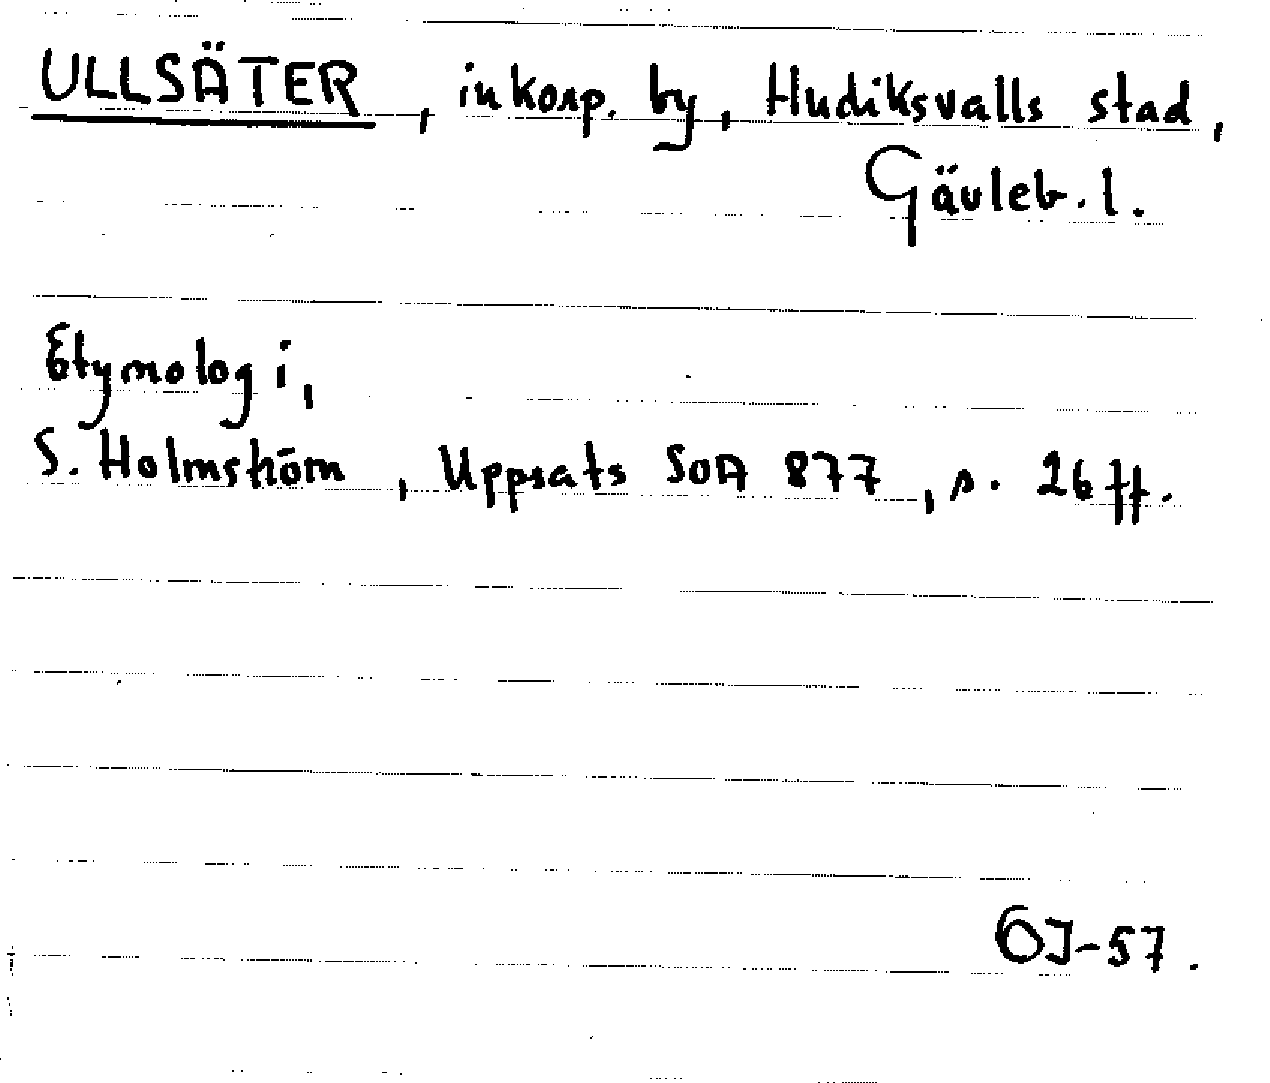 ULLSÄTER, inkorp. by, Hudiksvalls stad,
Gävleb. l.
Etymologi,
S. Holmström, Uppsats SOA 877, s. 26 ff.
OJ-57.